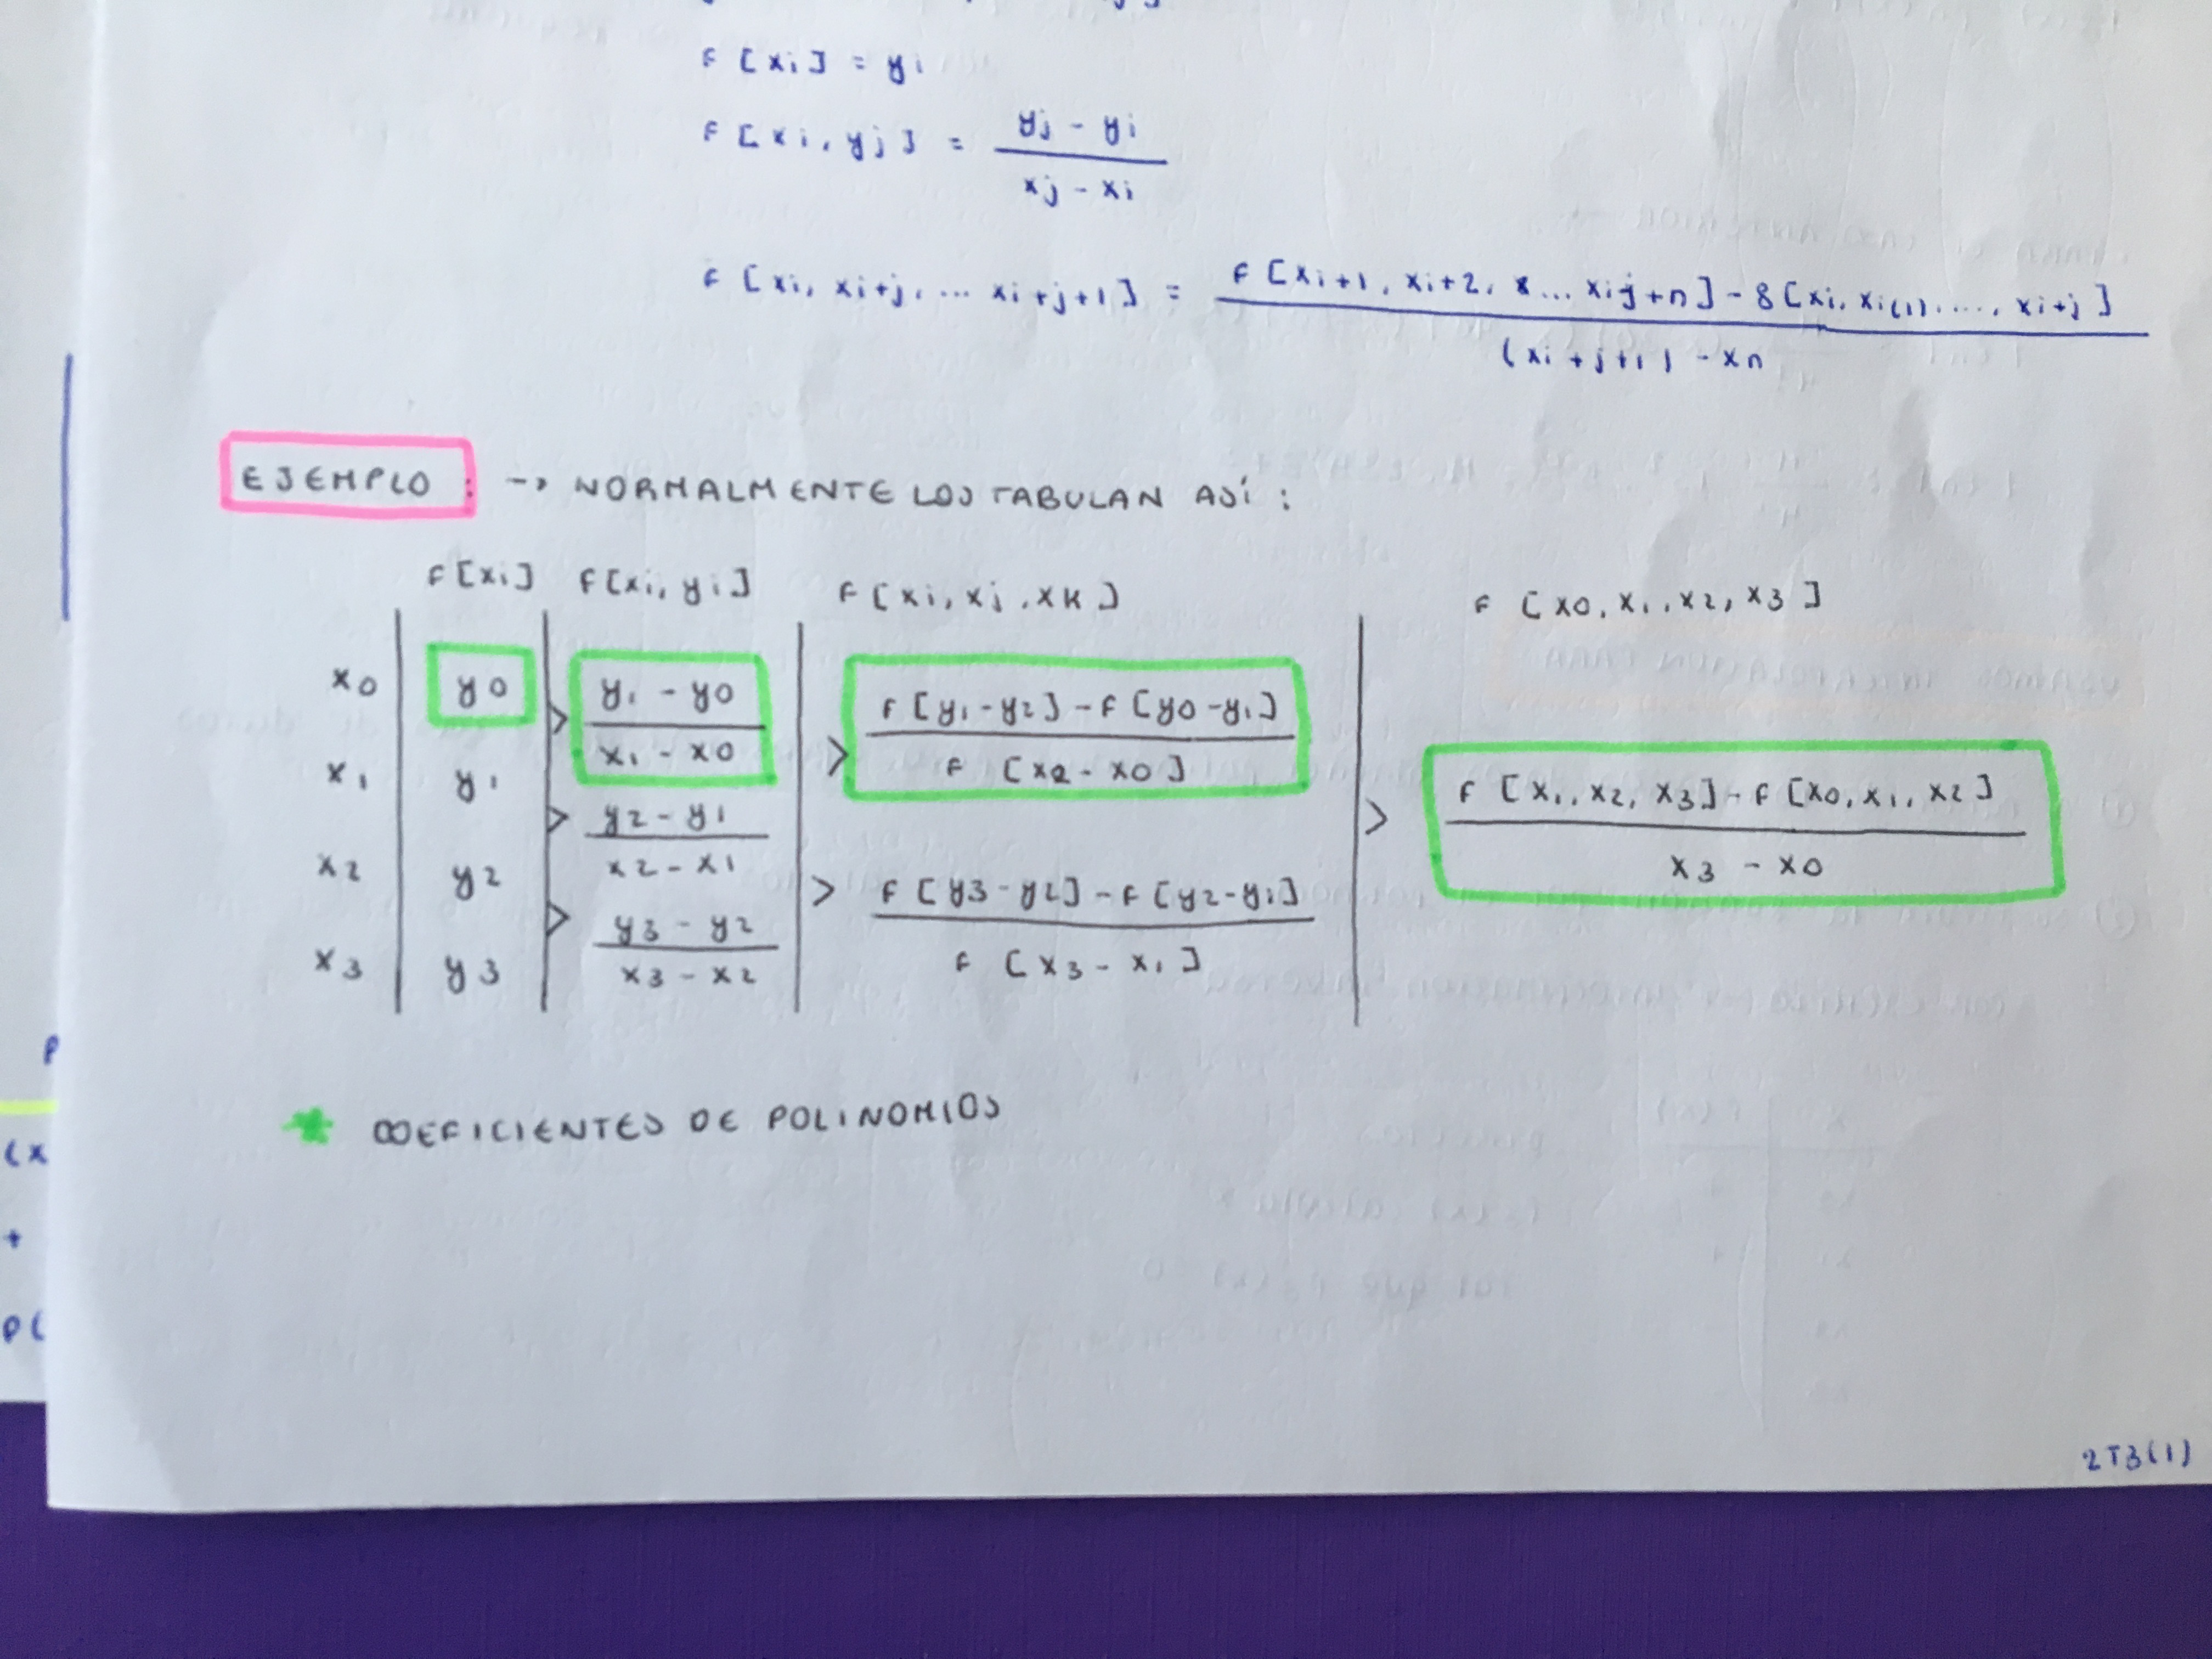 f [xi] = yi
f [xi, yj] = yj - yi / xj - xi
f [xi, xi+j, ... xi+j+1] = f [xi+1, xi+2, x... xij+n] - 8 [xi, xi(1), ..., xi+j] / (xi+j+1) - xn
EJEMPLO : -> NORMALMENTE LOS TABULAN ASÍ :
f [xi] f [xi, yi] f [xi, xj, xk] f [x0, x1, x2, x3]
x0 y0 > y1 - y0 / x1 - x0 > f [y1 - y2] - f [y0 - y1] / f [x2 - x0]
x1 y1 > y2 - y1 / x2 - x1 > f [x1, x2, x3] - f [x0, x1, x2] / x3 - x0
x2 y2 > y3 - y2 / x3 - x2 > f [y3 - y2] - f [y2 - y1] / f [x3 - x1]
x3 y3
* COEFICIENTES DE POLINOMIOS
P
(x
+
P(
2T3(1)